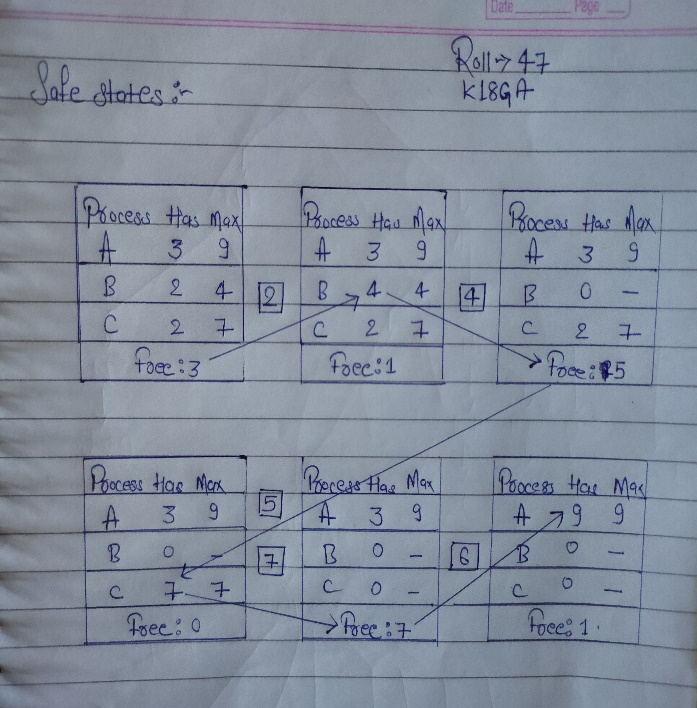 Date Page
Roll → 47
K18GA
Safe states :-
Process Has Max
A 3 9
B 2 4
C 2 7
Free: 3
2
Process Has Max
A 3 9
B 4 4
C 2 7
Free: 1
4
Process Has Max
A 3 9
B 0 -
C 2 7
Free: 5
Process Has Max
A 3 9
B 0 -
C 7 7
Free: 0
5
7
Process Has Max
A 3 9
B 0 -
C 0 -
Free: 7
6
Process Has Max
A 9 9
B 0 -
C 0 -
Free: 1.